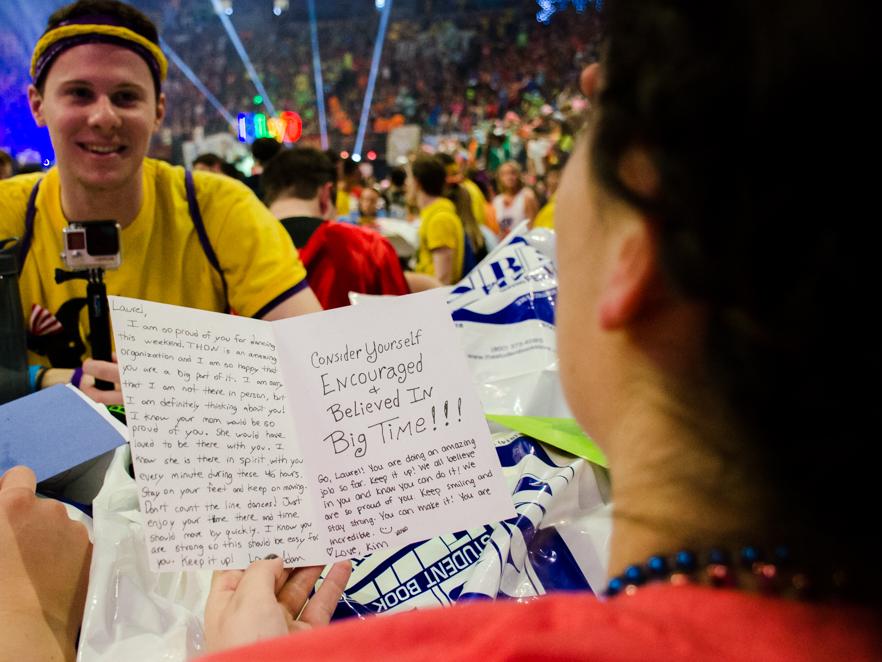 Laurel,
I am so proud of you for dancing
this weekend. THON is an amazing
organization and I am so happy that
you are a big part of it. I am sorry
that I am not there in person, but
I am definitely thinking about you!
I know your mom would be so
proud of you. She would have
loved to be there with you. I
know she is there in spirit with you
every minute during these 46 hours.
Stay on your feet and keep on moving.
Don't count the line dances! Just
enjoy your time there and time
should move by quickly. I know you
are strong so this should be easy for
you. Keep it up!
Consider Yourself
Encouraged
&
Believed In
Big Time!!!
Go, Laurel! You are doing an amazing
job so far. Keep it up! We all believe
in you and know you can do it! We
are so proud of you. Keep smiling and
stay strong. You can make it! You are
incredible.
Love, Kim
STUDENT BOOK